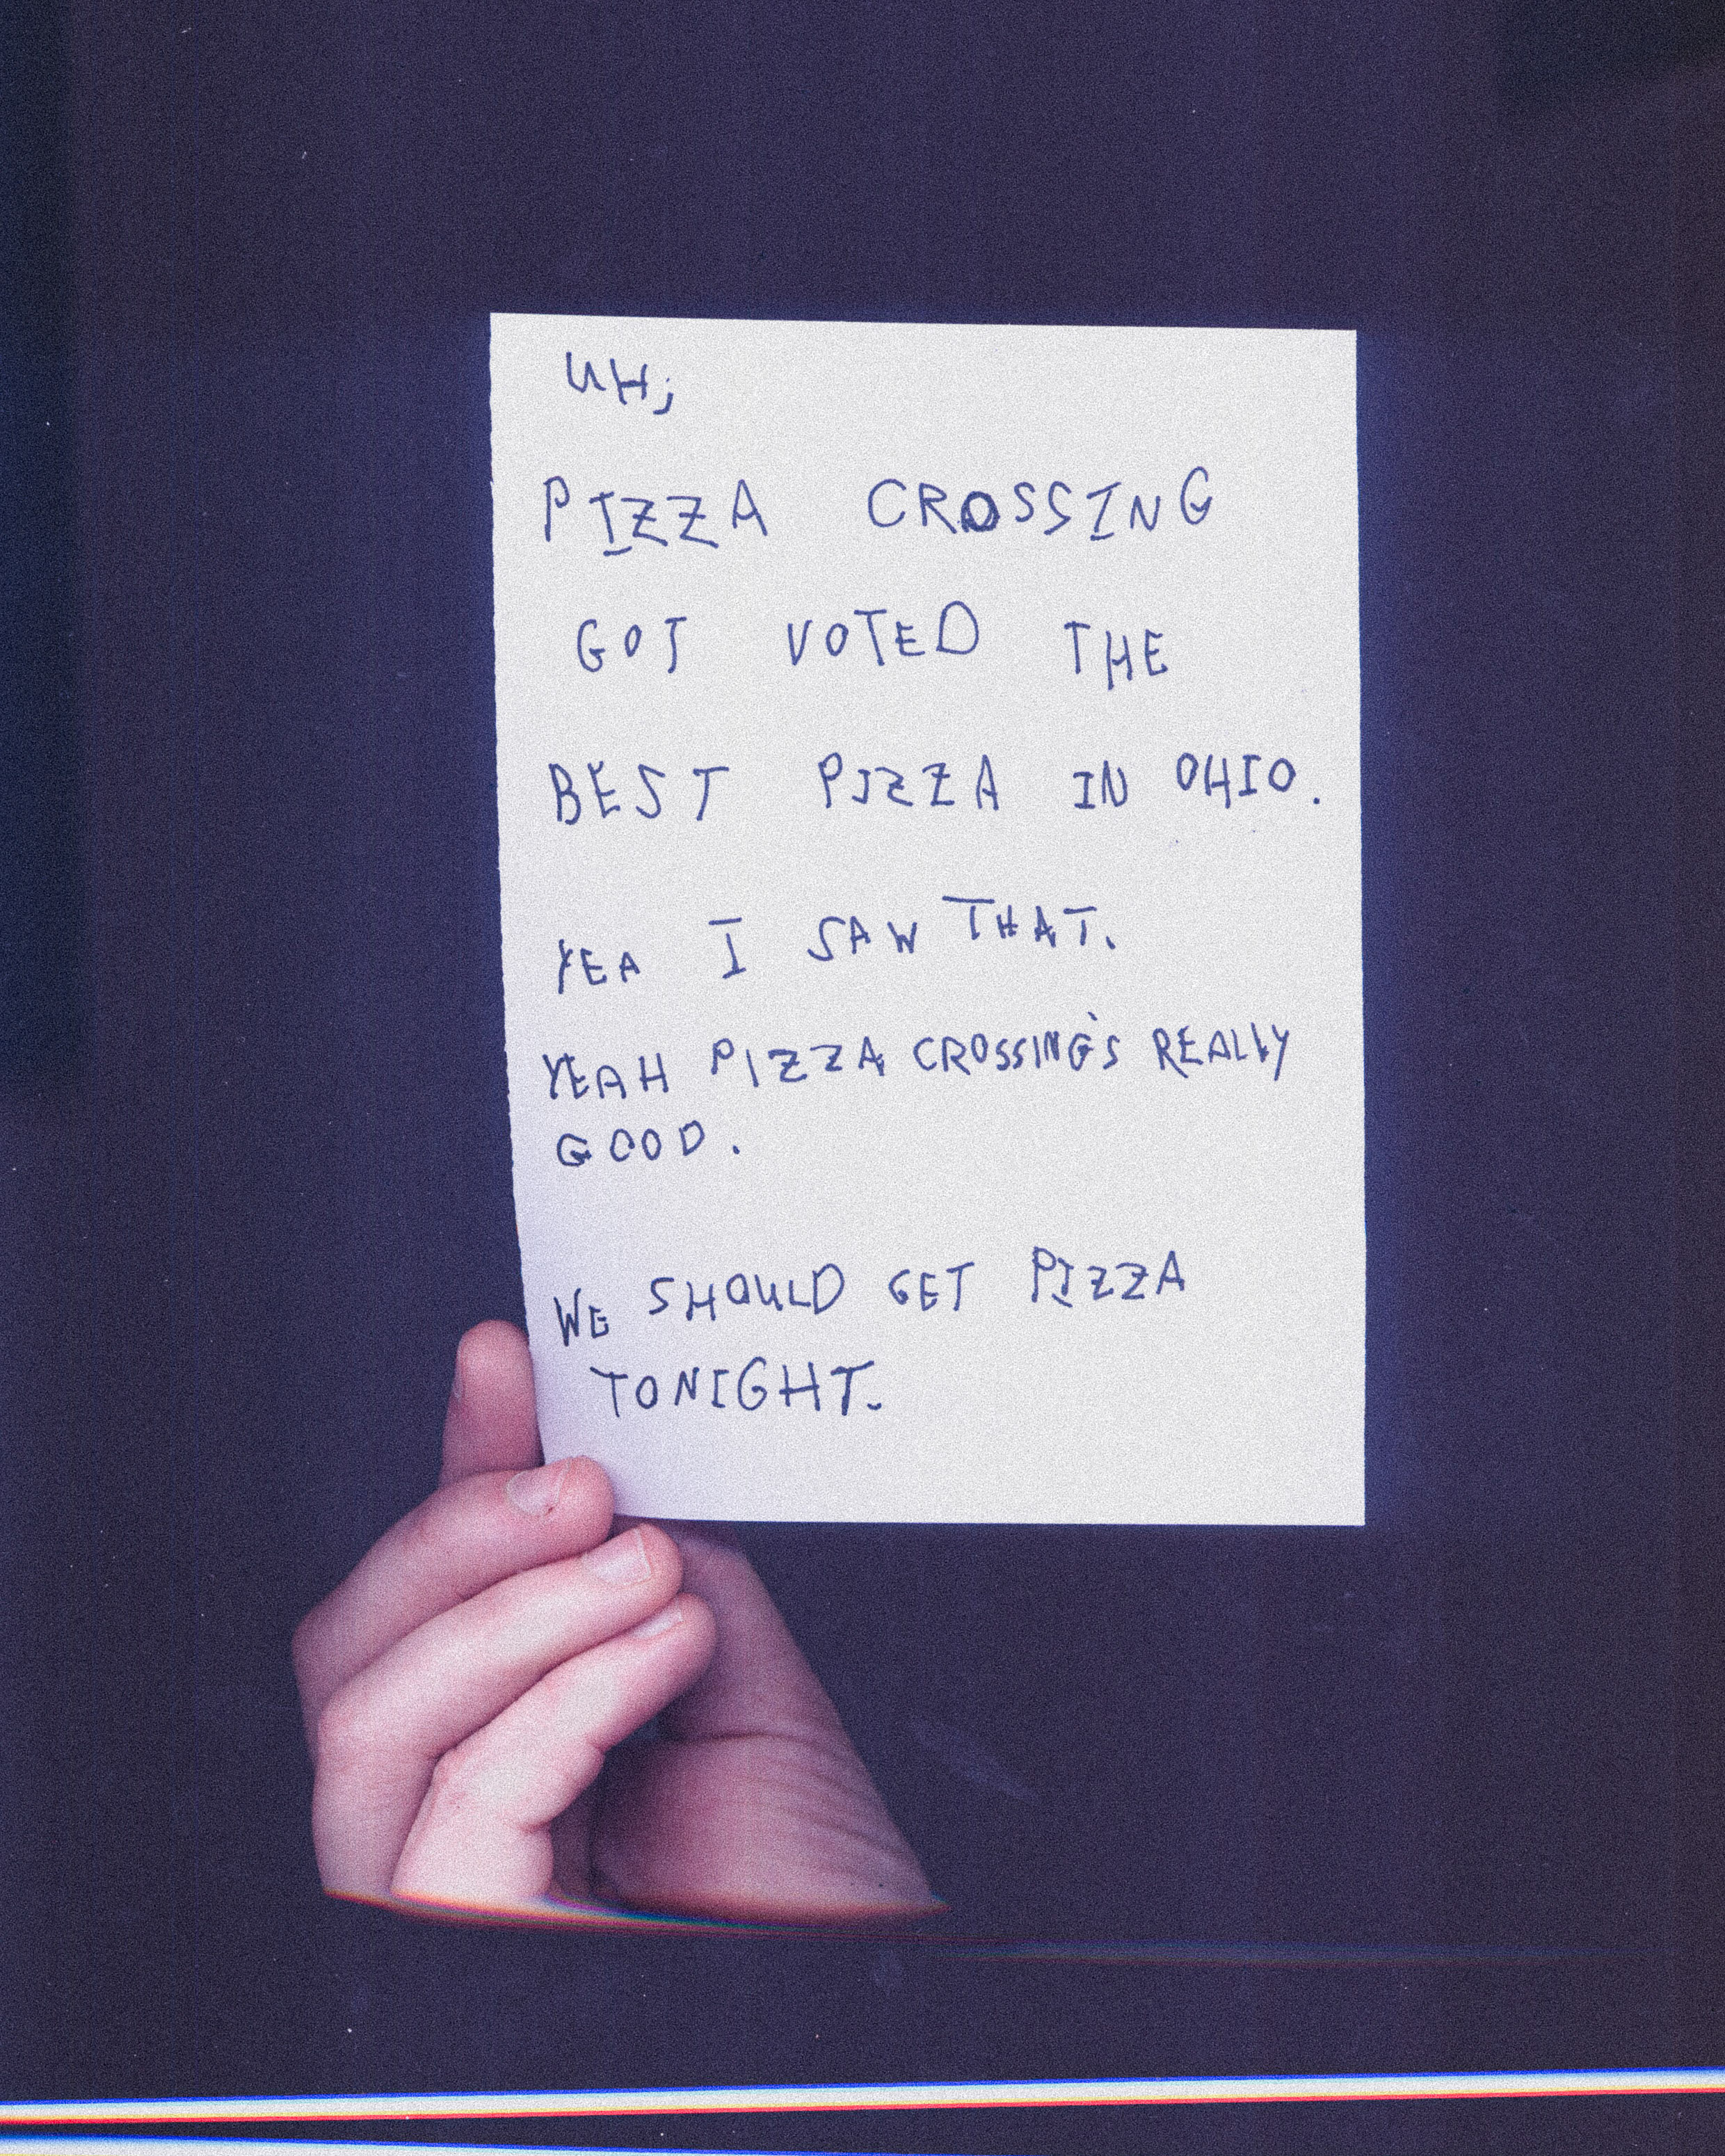 UH;
PIZZA CROSSING
GOT VOTED THE
BEST PIZZA IN OHIO.
YEA I SAW THAT.
YEAH PIZZA CROSSING'S REALLY
GOOD.
WE SHOULD GET PIZZA
TONIGHT.